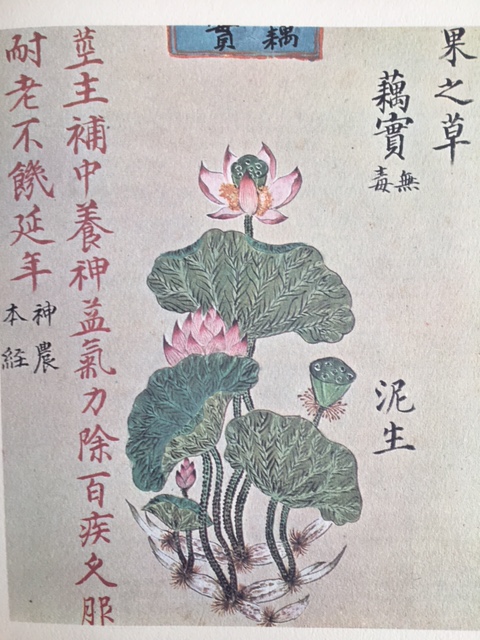 果之草
藕實
無毒
泥生
藕實
莖主補中養神益氣力除百疾久服
耐老不饑延年
神農
本経